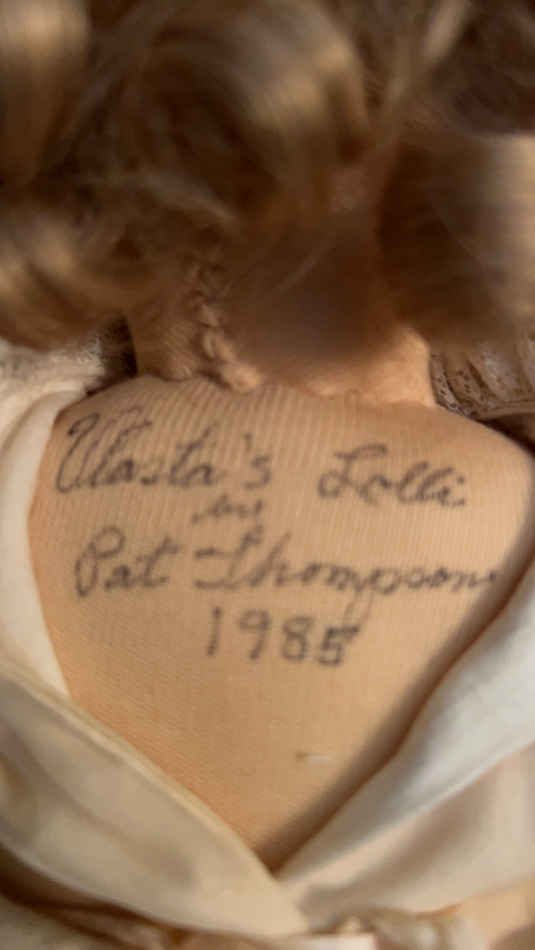 Vlasta's Lolli
by
Pat Thompson
1985